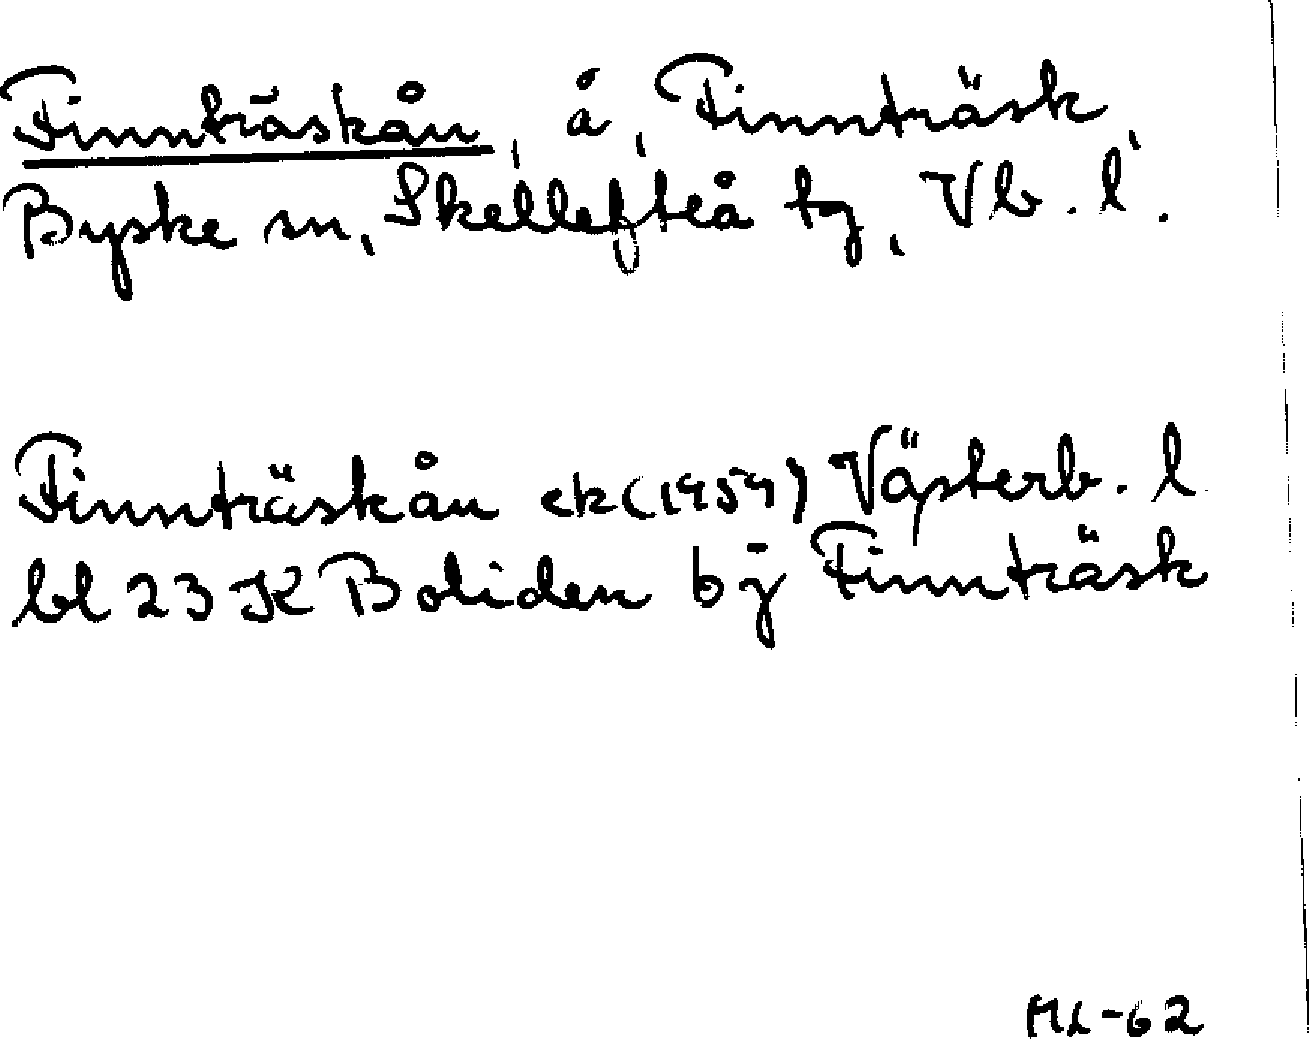 Finnträskån, å, Finnträsk,
Byske sn, Skellefteå tg, Vb. l.
Finnträskån ek (1959) Västerb. l
bl 23 K Boliden by Finnträsk